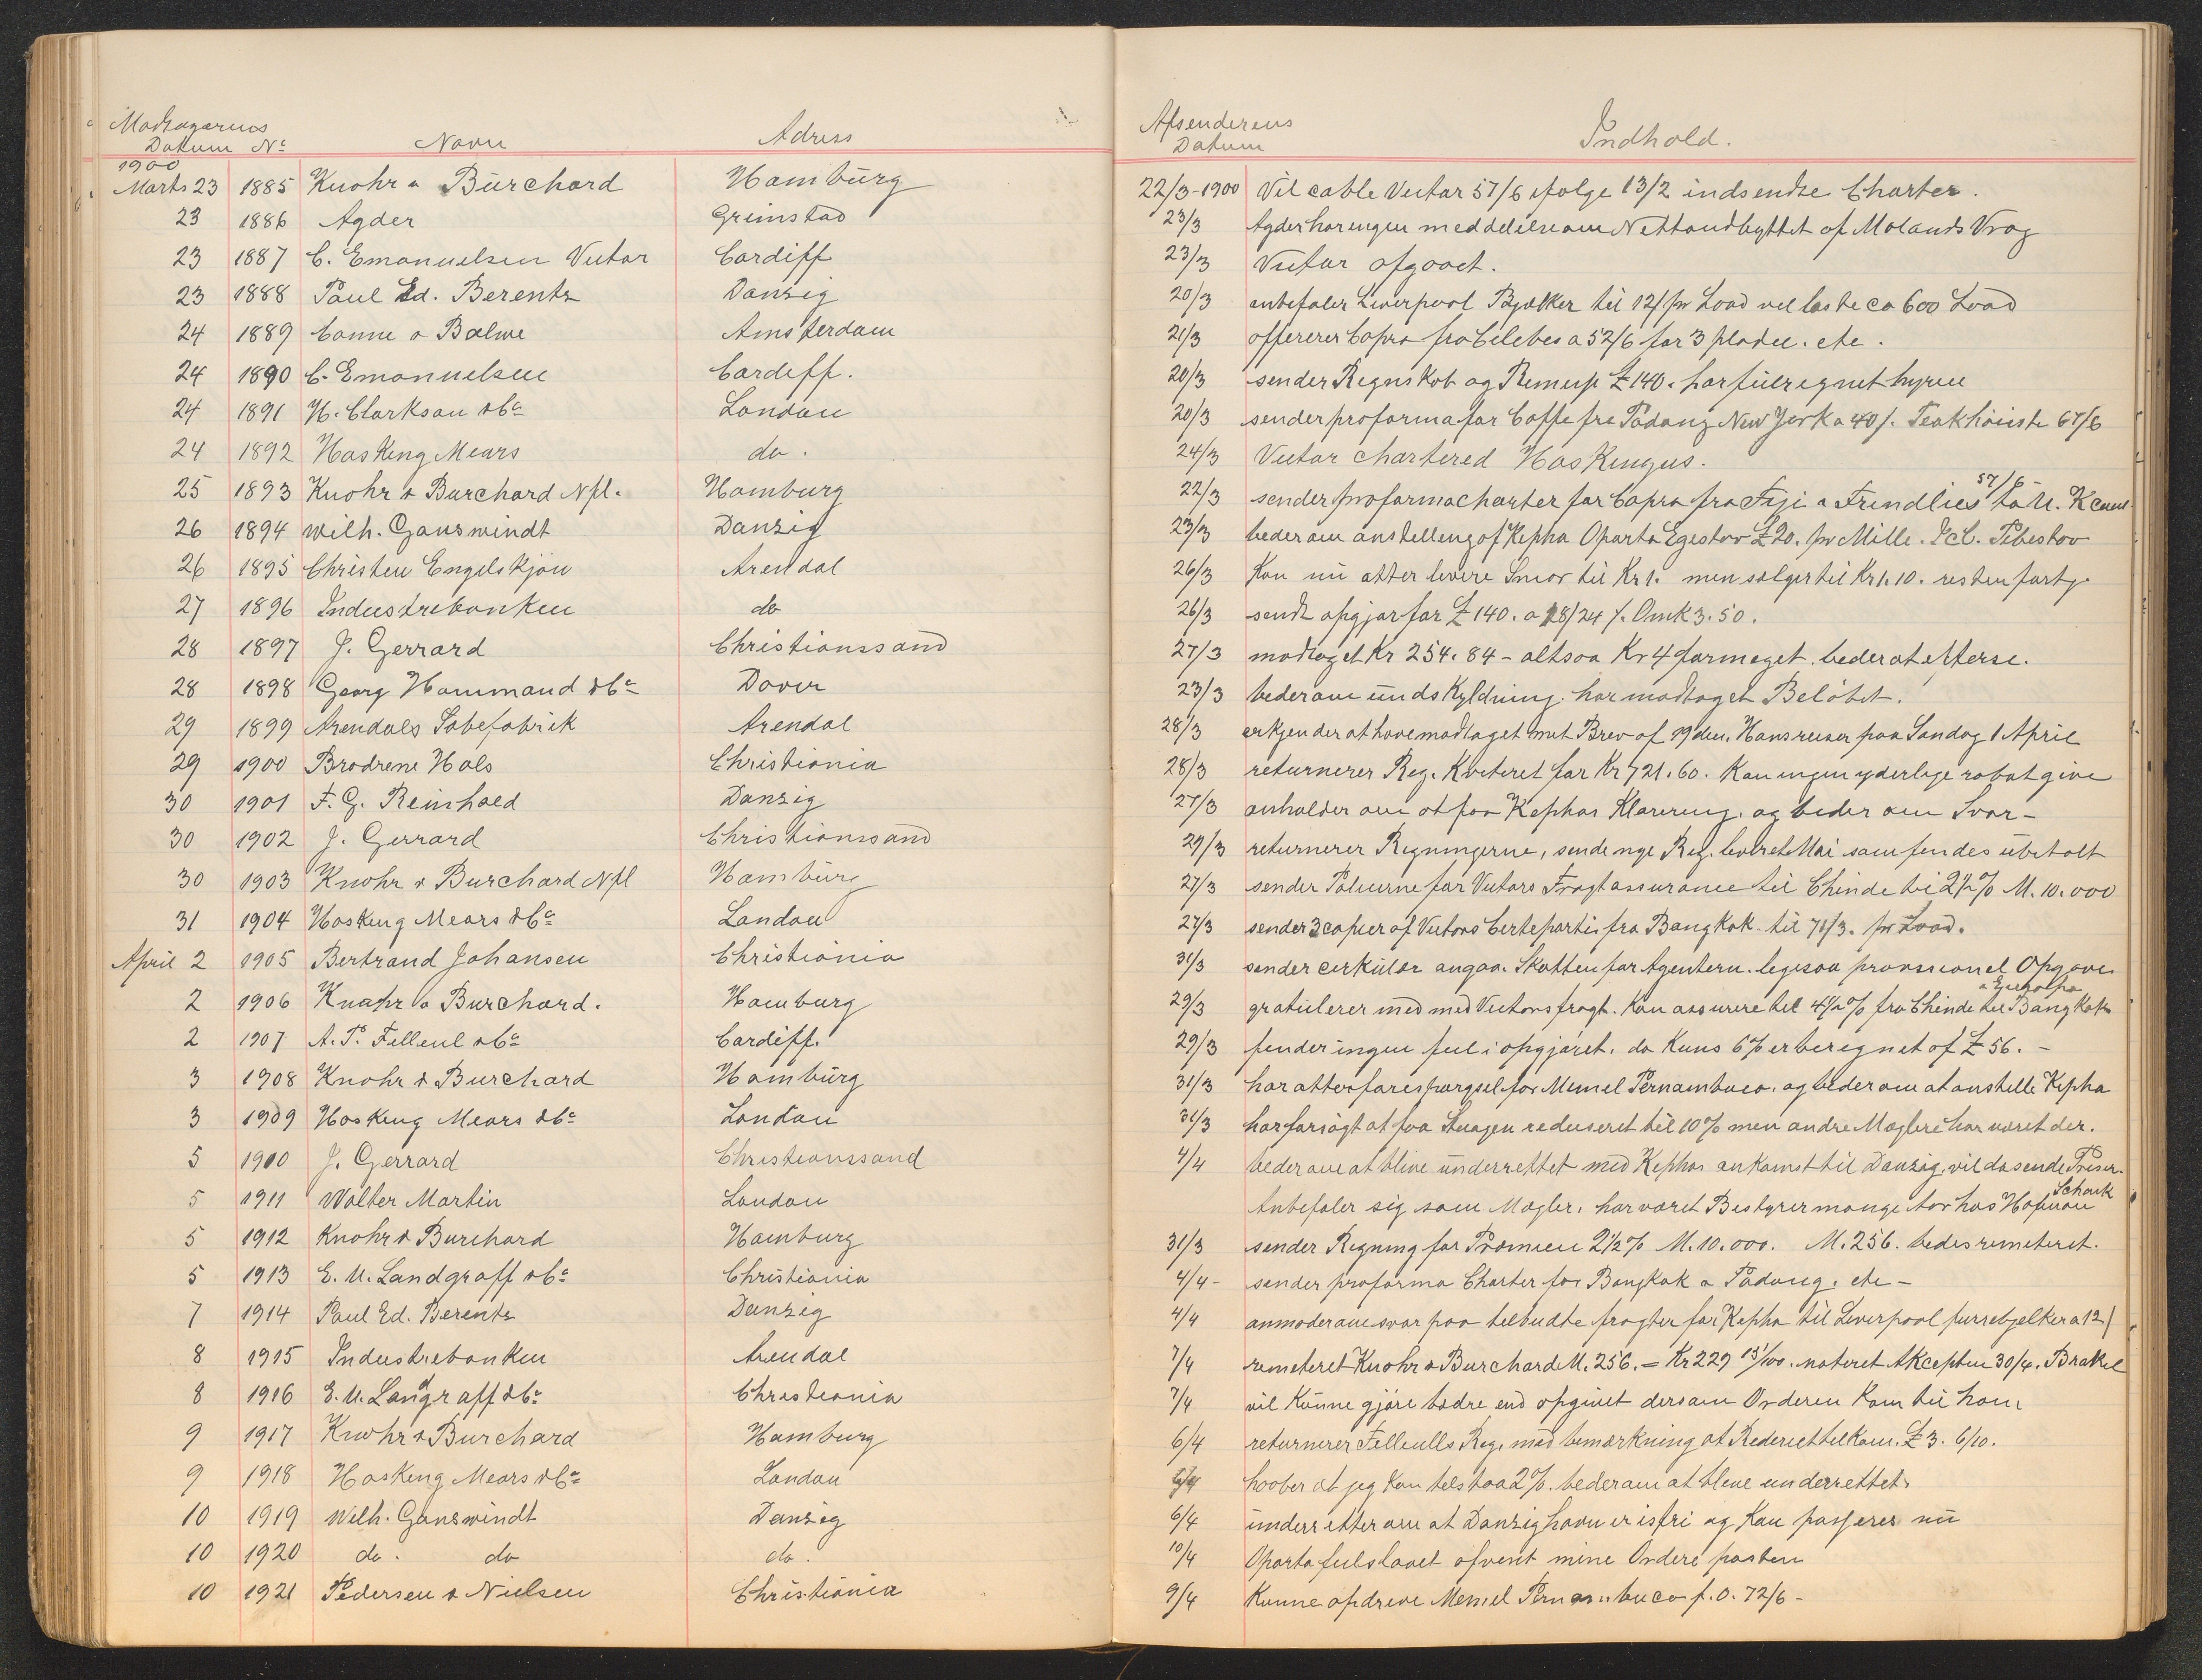 Modtagerens Afsenderens
Datum No Navn Adress Datum Indhold.
1900
Marts 23 1885 Knohr & Burchard Hamburg 22/3-1900 Vil cable Victor 57/6 ifølge 13/2 indsendte Charter.
23 1886 Agder Grimstad 23/3 Agder har ingen meddelelse om Nettoudbyttet af Molands Vrag
23 1887 C. Emanuelsen Victor Cardiff 23/3 Victor afgaaet.
23 1888 Paul Ed. Berentz Danzig 20/3 anbefaler Liverpool Bjælker til 12/ pr Load vel laste ca 600 Load
24 1889 Canne & Balwe Amsterdam 21/3 offererer Copra fra Celebes a 52/6 for 3 pladse. etc.
24 1890 C. Emanuelsen Cardiff. 20/3 sender Regnskab og £ 140.
24 1891 H. Clarkson & Co London 20/3 sender proforma for Caffe fra Padang New York a 40/. Teak 67/6
24 1892 Hasking Mears do. 24/3 Victor chartered Haskingus.
25 1893 Knohr & Burchard Nfl. Hamburg 22/3 sender proformacharter for Copra fra Fiji a Frindlies 57/6 to U.K.
26 1894 Wilh. Ganswindt Danzig 23/3 beder om anstelling af Kepha Oporto Egestav £ 20. pr Mille. Pibestav
26 1895 Christen Engelskjön Arendal 26/3 Kan nu atter levere Smør til Kr 1. men sælger til Kr 1.10. resten
27 1896 Industribanken do 26/3 sendt opgjør for £ 140. a 18/24 /. Omk 3.50.
28 1897 J. Gerrard Christianssand 27/3 modtaget Kr 254.84 - altsaa Kr 4 formeget. beder at efterse.
28 1898 Georg Hammand & Co Dover 23/3 beder om undskyldning. har modtaget Beløbet.
29 1899 Arendals Sæbefabrik Arendal 28/3 erkjender at have modtaget mit Brev af 19 den. Hans reiser paa Søndag 1 April
29 1900 Brødrene Hals Christiania 28/3 returnerer Reg. Kviteret for Kr 721.60. Kan ingen yderlige rabat give
30 1901 F. G. Reinhold Danzig 27/3 anholder om at faa Kephas Klarering. og beder om Svar -
30 1902 J. Gerrard Christianssand 29/3 returnerer Regningerne, sende nye Reg. leveret Mai som findes ubetalt
30 1903 Knohr & Burchard Nfl Hamburg 27/3 sender Policerne for Victors Fragtassurance til Chinde bi 2½% M. 10.000
31 1904 Hasking Mears & Co London 27/3 sender 3 copier af Victors Certeparti fra Bangkok til 71/3. pr Load.
April 2 1905 Bertrand Johansen Christiania 31/3 sender cirkulær angaa. Skatten for Agenteru. legesaa Opgave
2 1906 Knohr & Burchard. Hamburg 29/3 gratulerer med med Victors fragt. Kan assurere til 4½% fra Chinde til Bangkok
2 1907 A. P. Filleul & Co Cardiff. 29/3 finder ingen feil i opgjøret, da Kuns 6% er beregnet af £ 56. -
3 1908 Knohr & Burchard Hamburg 31/3 har atter forespørgsel for Memel Pernambuco. og beder om at anstelle Kepha
3 1909 Hasking Mears & Co London 31/3 har forsøgt at faa reduseret til 10% men andre Mæglere har været der.
5 1910 J. Gerrard Christianssand 4/4 beder om at blive underrettet med Kephas ankomst til Danzig, vil da sende Priser.
5 1911 Walter Martin London Anbefaler sig som Mægler, har været Bestyrer mange Aar hos Hofman Schark
5 1912 Knohr & Burchard Hamburg 31/3 sender Regning for Præmien 2½% M. 10.000. M. 256. bedes remiteret.
5 1913 E. U. Landgraff & Co Christiania 4/4 - sender proforma Charter for Bangkok a Padang. etc -
7 1914 Paul Ed. Berentz Danzig 4/4 anmoder om svar paa tilbudte fragter for Kepha til Liverpool furrebjelker a 12/
8 1915 Industribanken Arendal 7/4 remiteret Knohr & Burchard M. 256. = Kr 229 15/100. noteret Akcepten 30/4. Brakel
8 1916 E. U. Langraff & Co Christiania 7/4 vil Kunne gjøre bedre end opgivet dersom Orderen Kom til ham
9 1917 Knohr & Burchard Hamburg 6/4 returnerer Filleulls Reg. med bemærkning at Rederiet tilkom. £ 3. 6/10.
9 1918 Hasking Mears & Co London haaber at jeg kan tilstaa 2%. beder om at blive underrettet.
10 1919 Wilh. Ganswindt Danzig 6/4 underretter om at Danzig havn er isfri og Kan passeres nu
10 1920 do. do do. 10/4 Oporto feilslaaet afvent mine Ordere posten
10 1921 Pedersen & Nielsen Christiania 9/4 Kunne opdrive Memel Pernambuco f.o. 72/6 -